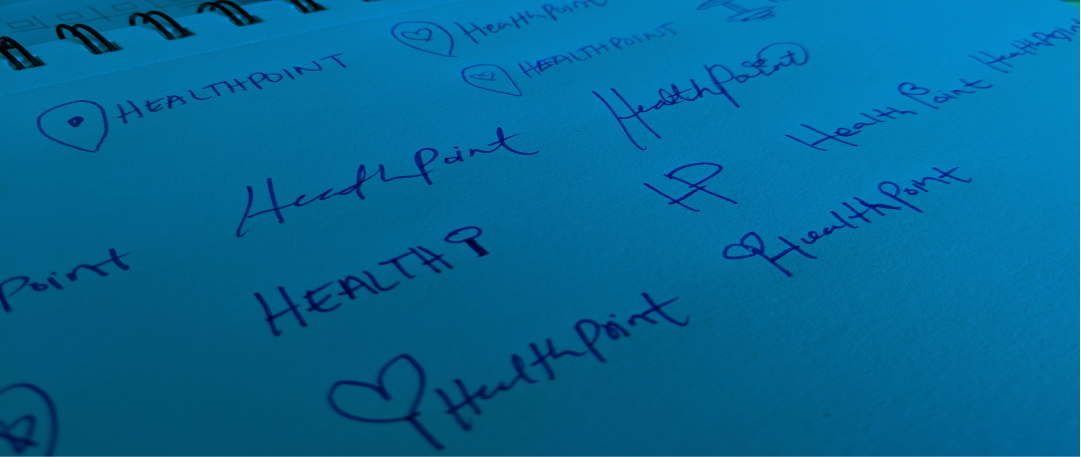 HealthPoint
HEALTHPOINT
HEALTHPOINT
HealthPoint
HealthPoint
Health Point
HealthPoint
HP
HealthPoint
Point
HEALTH
HealthPoint